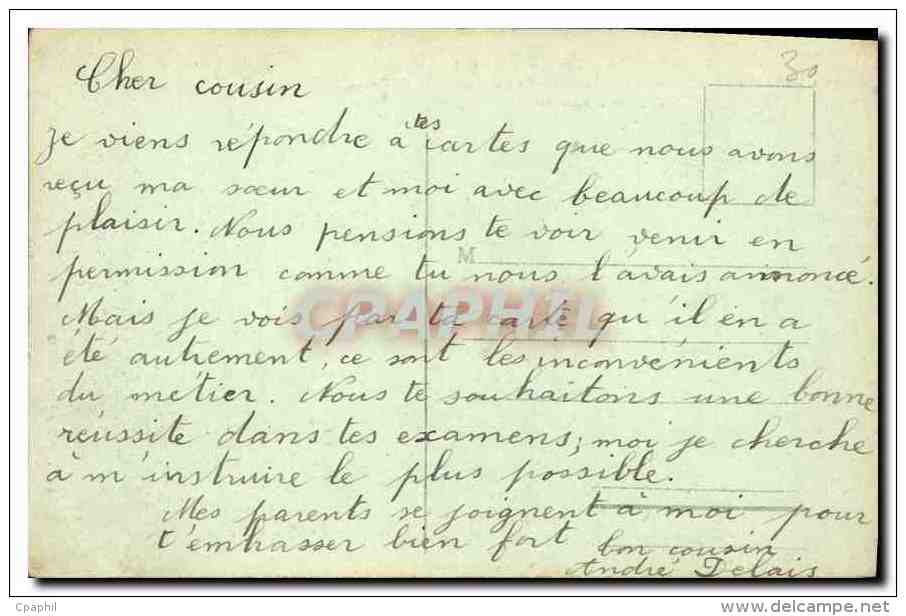 30
Cher cousin
Je viens répondre à tes cartes que nous avons
reçu ma sœur et moi avec beaucoup de
plaisir. Nous pensions te voir venir en
M
permission comme tu nous l'avais annoncé.
CPAPHIL
Mais je vois par ta carte qu'il en a
été autrement, ce sont les inconvénients
du métier. Nous te souhaitons une bonne
réussite dans tes examens; moi je cherche
à m'instruire le plus possible.
Mes parents se joignent à moi pour
t'embrasser bien fort bon cousin
André Delais
Cpaphil
www.delcampe.net